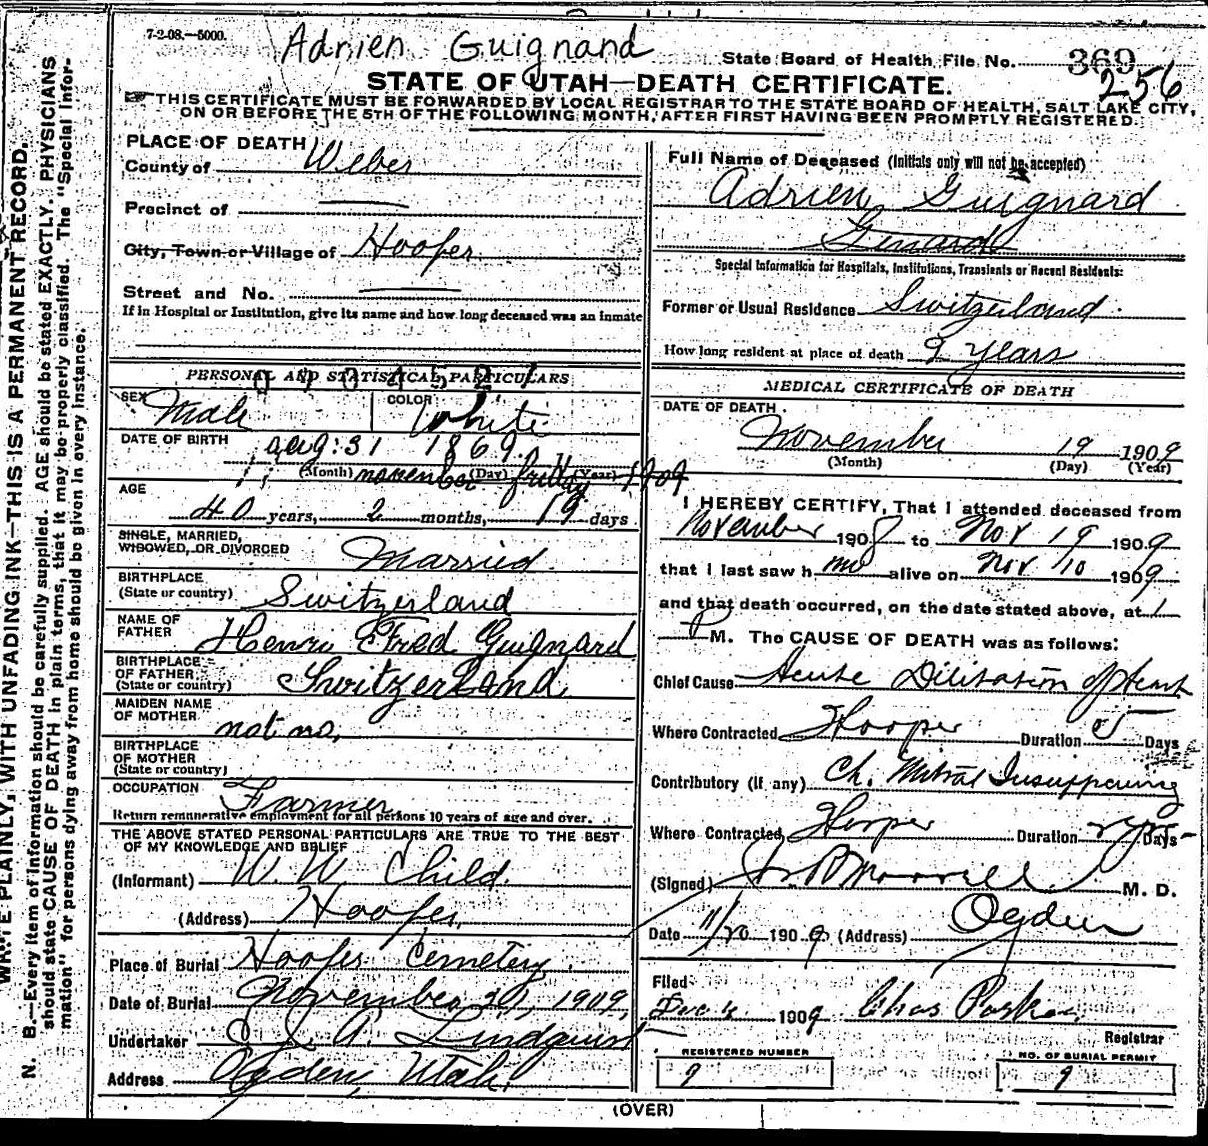 7-2-08.—5000.
Adrien Guignand
State Board of Health File No. 369
256
STATE OF UTAH—DEATH CERTIFICATE.
THIS CERTIFICATE MUST BE FORWARDED BY LOCAL REGISTRAR TO THE STATE BOARD OF HEALTH, SALT LAKE CITY,
ON OR BEFORE THE 5TH OF THE FOLLOWING MONTH, AFTER FIRST HAVING BEEN PROMPTLY REGISTERED.
PLACE OF DEATH
County of Weber
Precinct of
City, Town or Village of Hooper
Street and No.
If in Hospital or Institution, give its name and how long deceased was an inmate
PERSONAL AND STATISTICAL PARTICULARS
SEX Male
COLOR White
DATE OF BIRTH aug. 31 1869
(Month) (Day) (Year)
november friday 1909
AGE
40 years, 2 months, 19 days
SINGLE, MARRIED,
WIDOWED, OR DIVORCED Married
BIRTHPLACE
(State or country) Switzerland
NAME OF
FATHER Henry Fred Guignard
BIRTHPLACE
OF FATHER
(State or country) Switzerland
MAIDEN NAME
OF MOTHER not no.
BIRTHPLACE
OF MOTHER
(State or country)
OCCUPATION Farmer
Return remunerative employment for all persons 10 years of age and over.
THE ABOVE STATED PERSONAL PARTICULARS ARE TRUE TO THE BEST
OF MY KNOWLEDGE AND BELIEF
(Informant) W. W. Child.
(Address) Hooper,
Place of Burial Hooper Cemetery.
Date of Burial November 21, 1909,
Undertaker A Lindquist
Address Ogden, Utah.
Full Name of Deceased (Initials only will not be accepted)
Adrien Guignard
Special Information for Hospitals, Institutions, Transients or Recent Residents:
Former or Usual Residence Switzerland.
How long resident at place of death 9 years
MEDICAL CERTIFICATE OF DEATH
DATE OF DEATH.
November 19 1909
(Month) (Day) (Year)
I HEREBY CERTIFY, That I attended deceased from
November 1908 to Nov 19 1909
that I last saw him alive on Nov 10 1909.
and that death occurred, on the date stated above, at 1
P M. The CAUSE OF DEATH was as follows:
Chief Cause Acute Dilitation of heart
Where Contracted Hooper Duration 5 Days
Contributory (if any) Ch. Mitral
Where Contracted Hooper Duration Days
(Signed) Morrill M. D.
Date 11/20 1909 (Address) Ogden
Filed
Dec 4 1909 Chas Parker
Registrar
REGISTERED NUMBER
9
NO. OF BURIAL PERMIT
9
(OVER)
WRITE PLAINLY, WITH UNFADING INK—THIS IS A PERMANENT RECORD.
N. B.—Every item of information should be carefully supplied. AGE should be stated EXACTLY. PHYSICIANS
should state CAUSE OF DEATH in plain terms, that it may be properly classified. The "Special Infor-
mation" for persons dying away from home should be given in every instance.